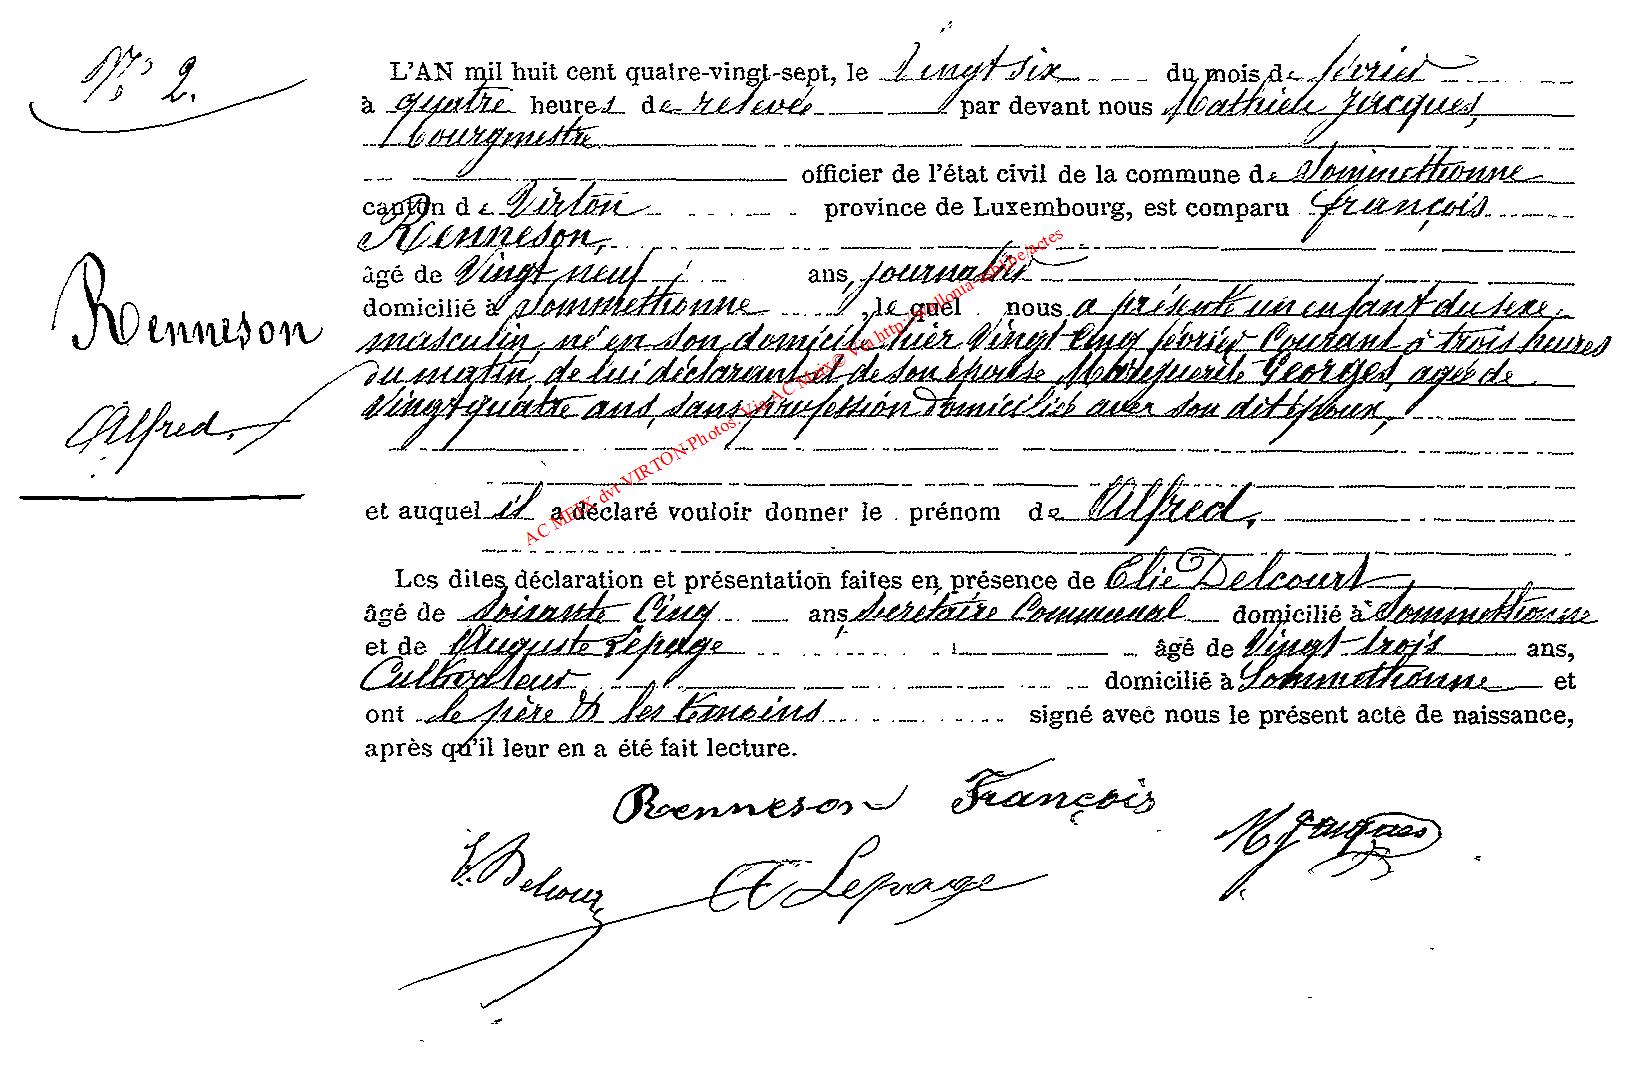 N° 2.
Renneson
Alfred.
L'AN mil huit cent quatre-vingt-sept, le Vingt six du mois de février
à quatre heures de relevée par devant nous Mathieu Jacques,
Bourgmestre
officier de l'état civil de la commune de Sommethonne
canton de Virton province de Luxembourg, est comparu François
Renneson,
âgé de Vingt neuf ans, journalier
domicilié à Sommethonne, le quel nous a présenté un enfant du sexe
masculin, né en son domicile hier Vingt Cinq février Courant à trois heures
du matin, de lui déclarant et de son épouse Marguerite Georges, agée de
Vingt quatre ans, sans profession domiciliée avec son dit époux,
et auquel il a déclaré vouloir donner le prénom de Alfred.
Les dites déclaration et présentation faites en présence de Elie Delcourt,
âgé de Soixante Cinq ans, Secrétaire Communal domicilié à Sommethonne
et de Auguste Lepage âgé de Vingt-trois ans,
Cultivateur domicilié à Sommethonne et
ont le père & les témoins signé avec nous le présent acte de naissance,
après qu'il leur en a été fait lecture.
Renneson François
M Jacques
E. Delcour
A Lepage
AC MEIX dvt VIRTON-Photos: Via AC Meix© Via